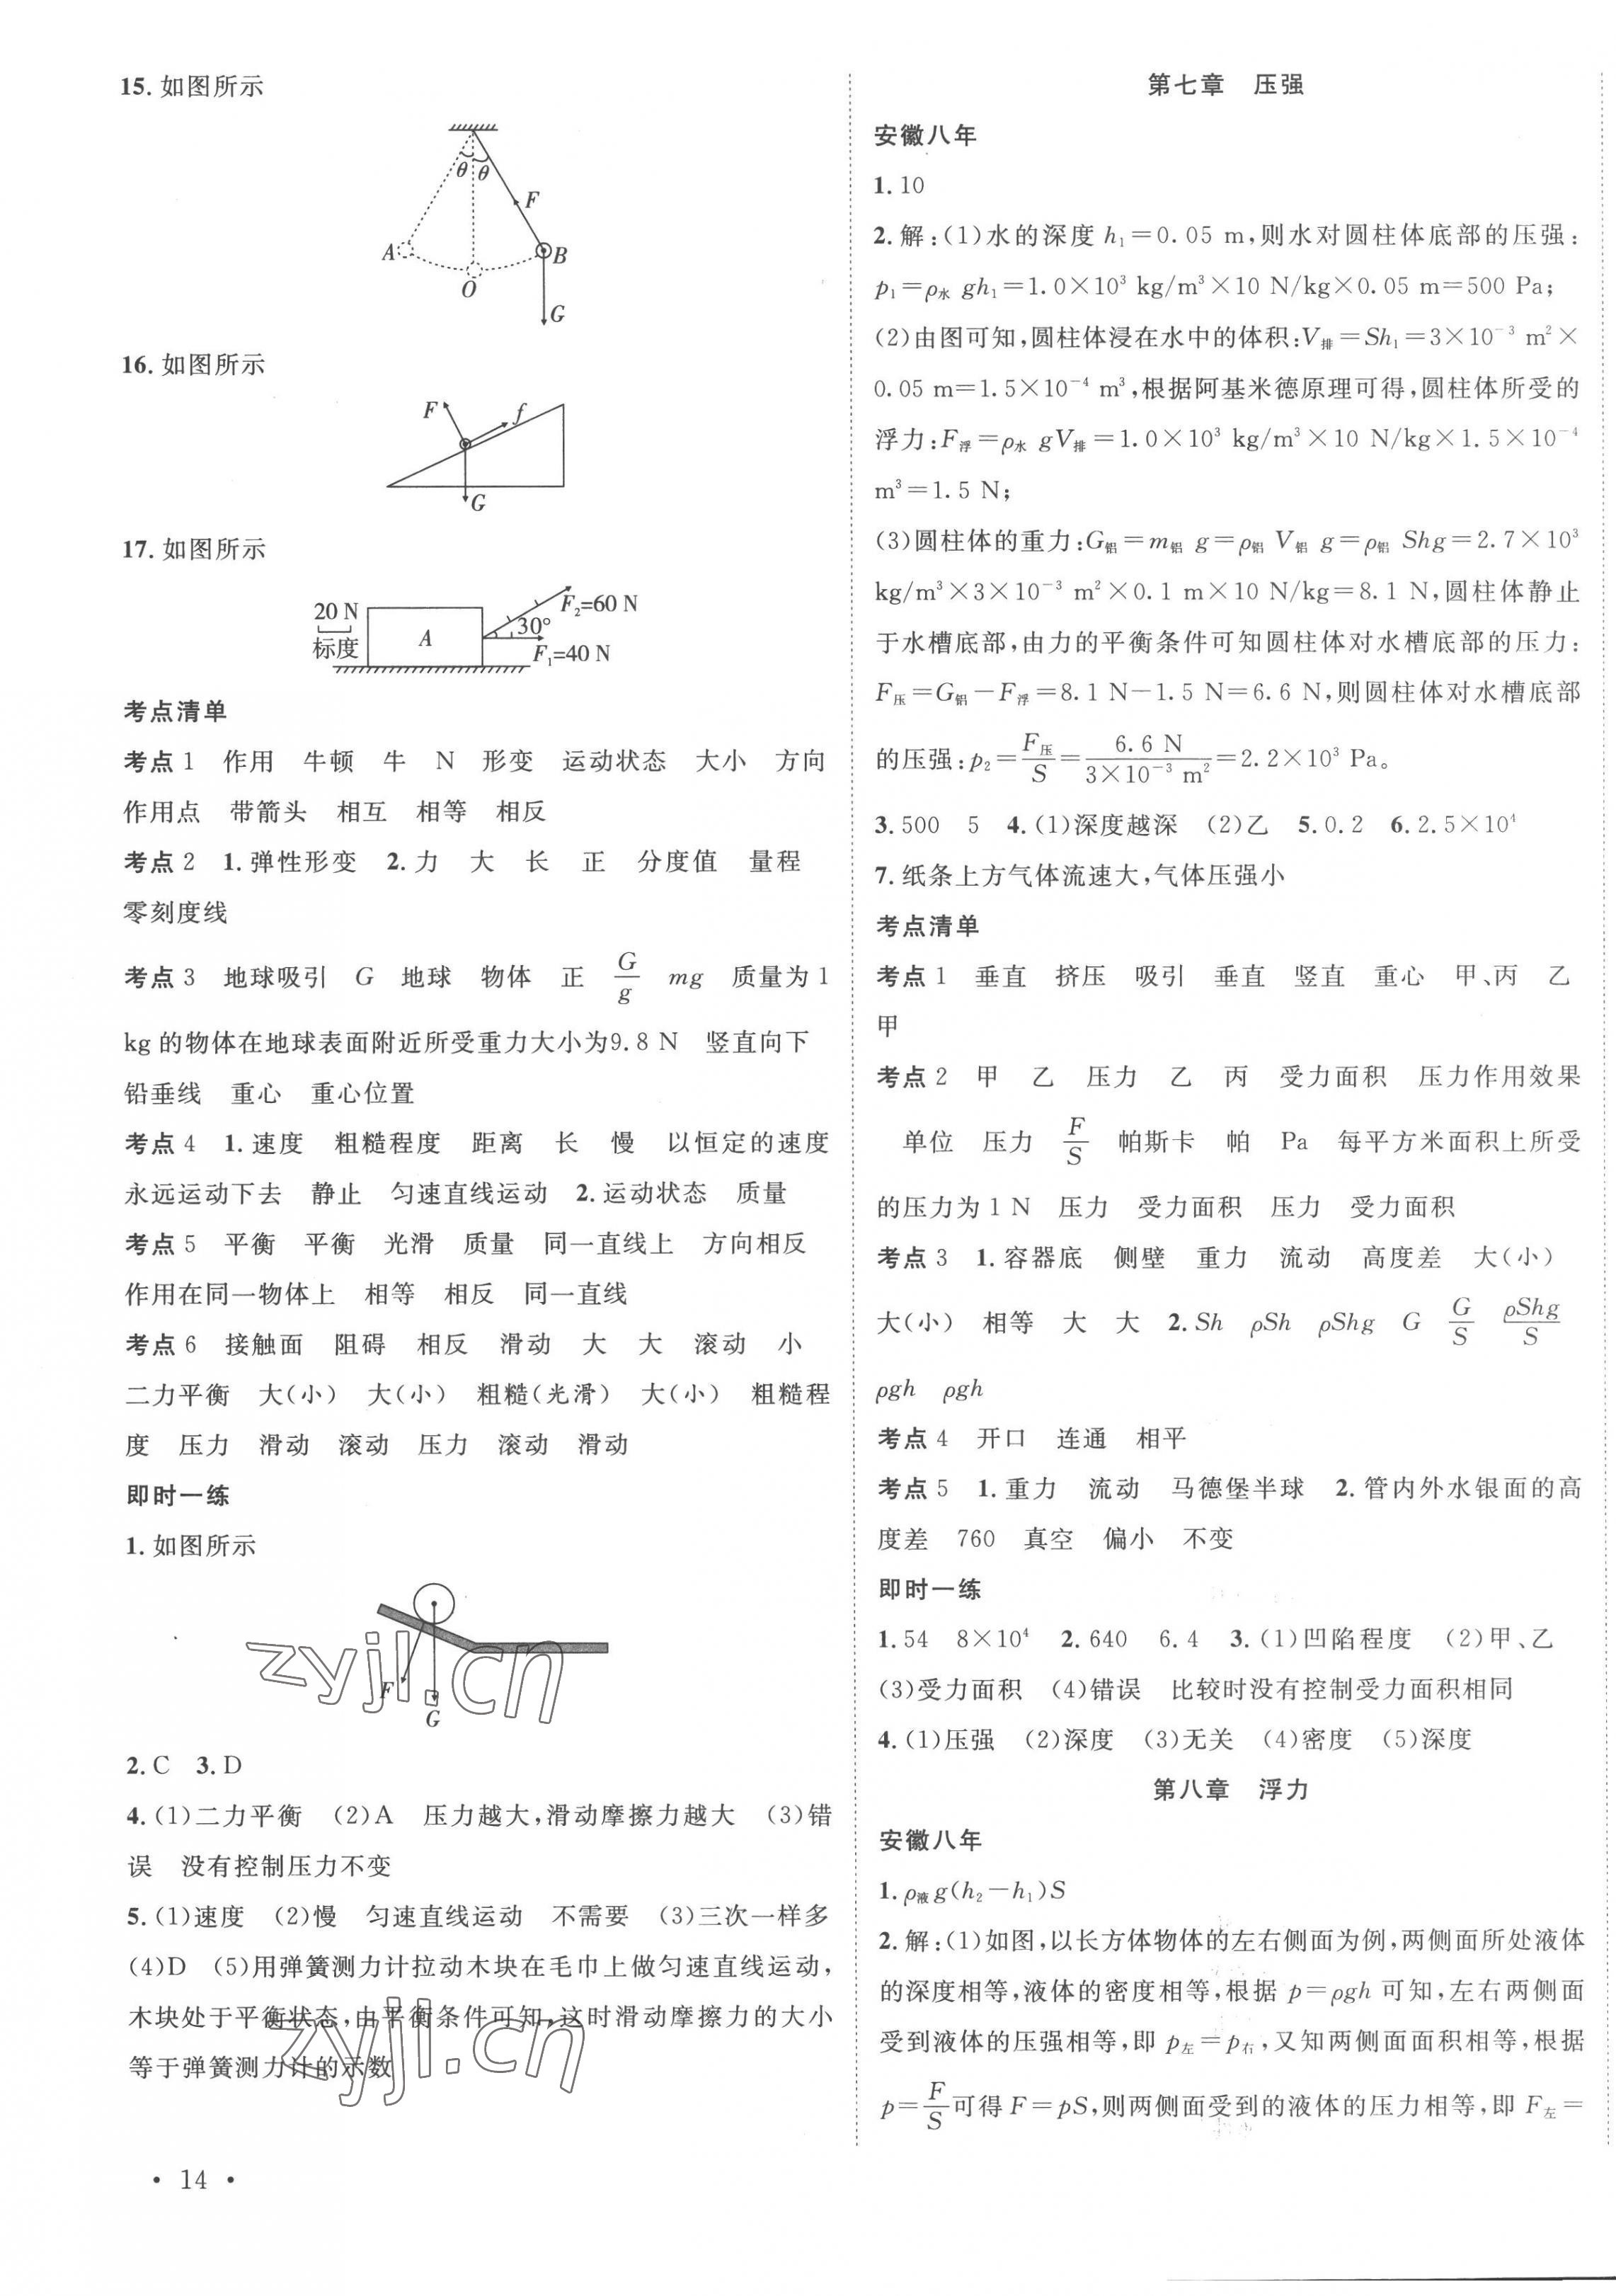 15. 如图所示
θ θ
F
A
B
O
G
16. 如图所示
F
f
G
17. 如图所示
20 N
标度
A
F₂=60 N
30°
F₁=40 N
考点清单
考点 1 作用 牛顿 牛 N 形变 运动状态 大小 方向
作用点 带箭头 相互 相等 相反
考点 2 1. 弹性形变 2. 力 大 长 正 分度值 量程
零刻度线
考点 3 地球吸引 G 地球 物体 正 G/g mg 质量为 1
kg 的物体在地球表面附近所受重力大小为9.8 N 竖直向下
铅垂线 重心 重心位置
考点 4 1. 速度 粗糙程度 距离 长 慢 以恒定的速度
永远运动下去 静止 匀速直线运动 2. 运动状态 质量
考点 5 平衡 平衡 光滑 质量 同一直线上 方向相反
作用在同一物体上 相等 相反 同一直线
考点 6 接触面 阻碍 相反 滑动 大 大 滚动 小
二力平衡 大(小) 大(小) 粗糙(光滑) 大(小) 粗糙程
度 压力 滑动 滚动 压力 滚动 滑动
即时一练
1. 如图所示
F
G
zyjl.cn
2. C 3. D
4. (1)二力平衡 (2)A 压力越大,滑动摩擦力越大 (3)错
误 没有控制压力不变
5. (1)速度 (2)慢 匀速直线运动 不需要 (3)三次一样多
(4)D (5)用弹簧测力计拉动木块在毛巾上做匀速直线运动,
木块处于平衡状态,由平衡条件可知,这时滑动摩擦力的大小
等于弹簧测力计的示数
zyjl.cn
• 14 •
第七章 压强
安徽八年
1. 10
2. 解:(1)水的深度 h₁=0.05 m,则水对圆柱体底部的压强:
p₁=ρ水 gh₁=1.0×10³ kg/m³×10 N/kg×0.05 m=500 Pa;
(2)由图可知,圆柱体浸在水中的体积:V排=Sh₁=3×10⁻³ m²×
0.05 m=1.5×10⁻⁴ m³,根据阿基米德原理可得,圆柱体所受的
浮力:F浮=ρ水 gV排=1.0×10³ kg/m³×10 N/kg×1.5×10⁻⁴
m³=1.5 N;
(3)圆柱体的重力:G铝=m铝 g=ρ铝 V铝 g=ρ铝 Shg=2.7×10³
kg/m³×3×10⁻³ m²×0.1 m×10 N/kg=8.1 N,圆柱体静止
于水槽底部,由力的平衡条件可知圆柱体对水槽底部的压力:
F压=G铝-F浮=8.1 N-1.5 N=6.6 N,则圆柱体对水槽底部
的压强:p₂=F压/S=6.6 N/3×10⁻³ m²=2.2×10³ Pa。
3. 500 5 4. (1)深度越深 (2)乙 5. 0.2 6. 2.5×10⁴
7. 纸条上方气体流速大,气体压强小
考点清单
考点 1 垂直 挤压 吸引 垂直 竖直 重心 甲、丙 乙
甲
考点 2 甲 乙 压力 乙 丙 受力面积 压力作用效果
单位 压力 F/S 帕斯卡 帕 Pa 每平方米面积上所受
的压力为 1 N 压力 受力面积 压力 受力面积
考点 3 1. 容器底 侧壁 重力 流动 高度差 大(小)
大(小) 相等 大 大 2. Sh ρSh ρShg G G/S ρShg/S
ρgh ρgh
考点 4 开口 连通 相平
考点 5 1. 重力 流动 马德堡半球 2. 管内外水银面的高
度差 760 真空 偏小 不变
即时一练
1. 54 8×10⁴ 2. 640 6.4 3. (1)凹陷程度 (2)甲、乙
(3)受力面积 (4)错误 比较时没有控制受力面积相同
4. (1)压强 (2)深度 (3)无关 (4)密度 (5)深度
第八章 浮力
安徽八年
1. ρ液g(h₂-h₁)S
2. 解:(1)如图,以长方体物体的左右侧面为例,两侧面所处液体
的深度相等,液体的密度相等,根据 p=ρgh 可知,左右两侧面
受到液体的压强相等,即 p左=p右,又知两侧面面积相等,根据
p=F/S可得 F=pS,则两侧面受到的液体的压力相等,即 F左=